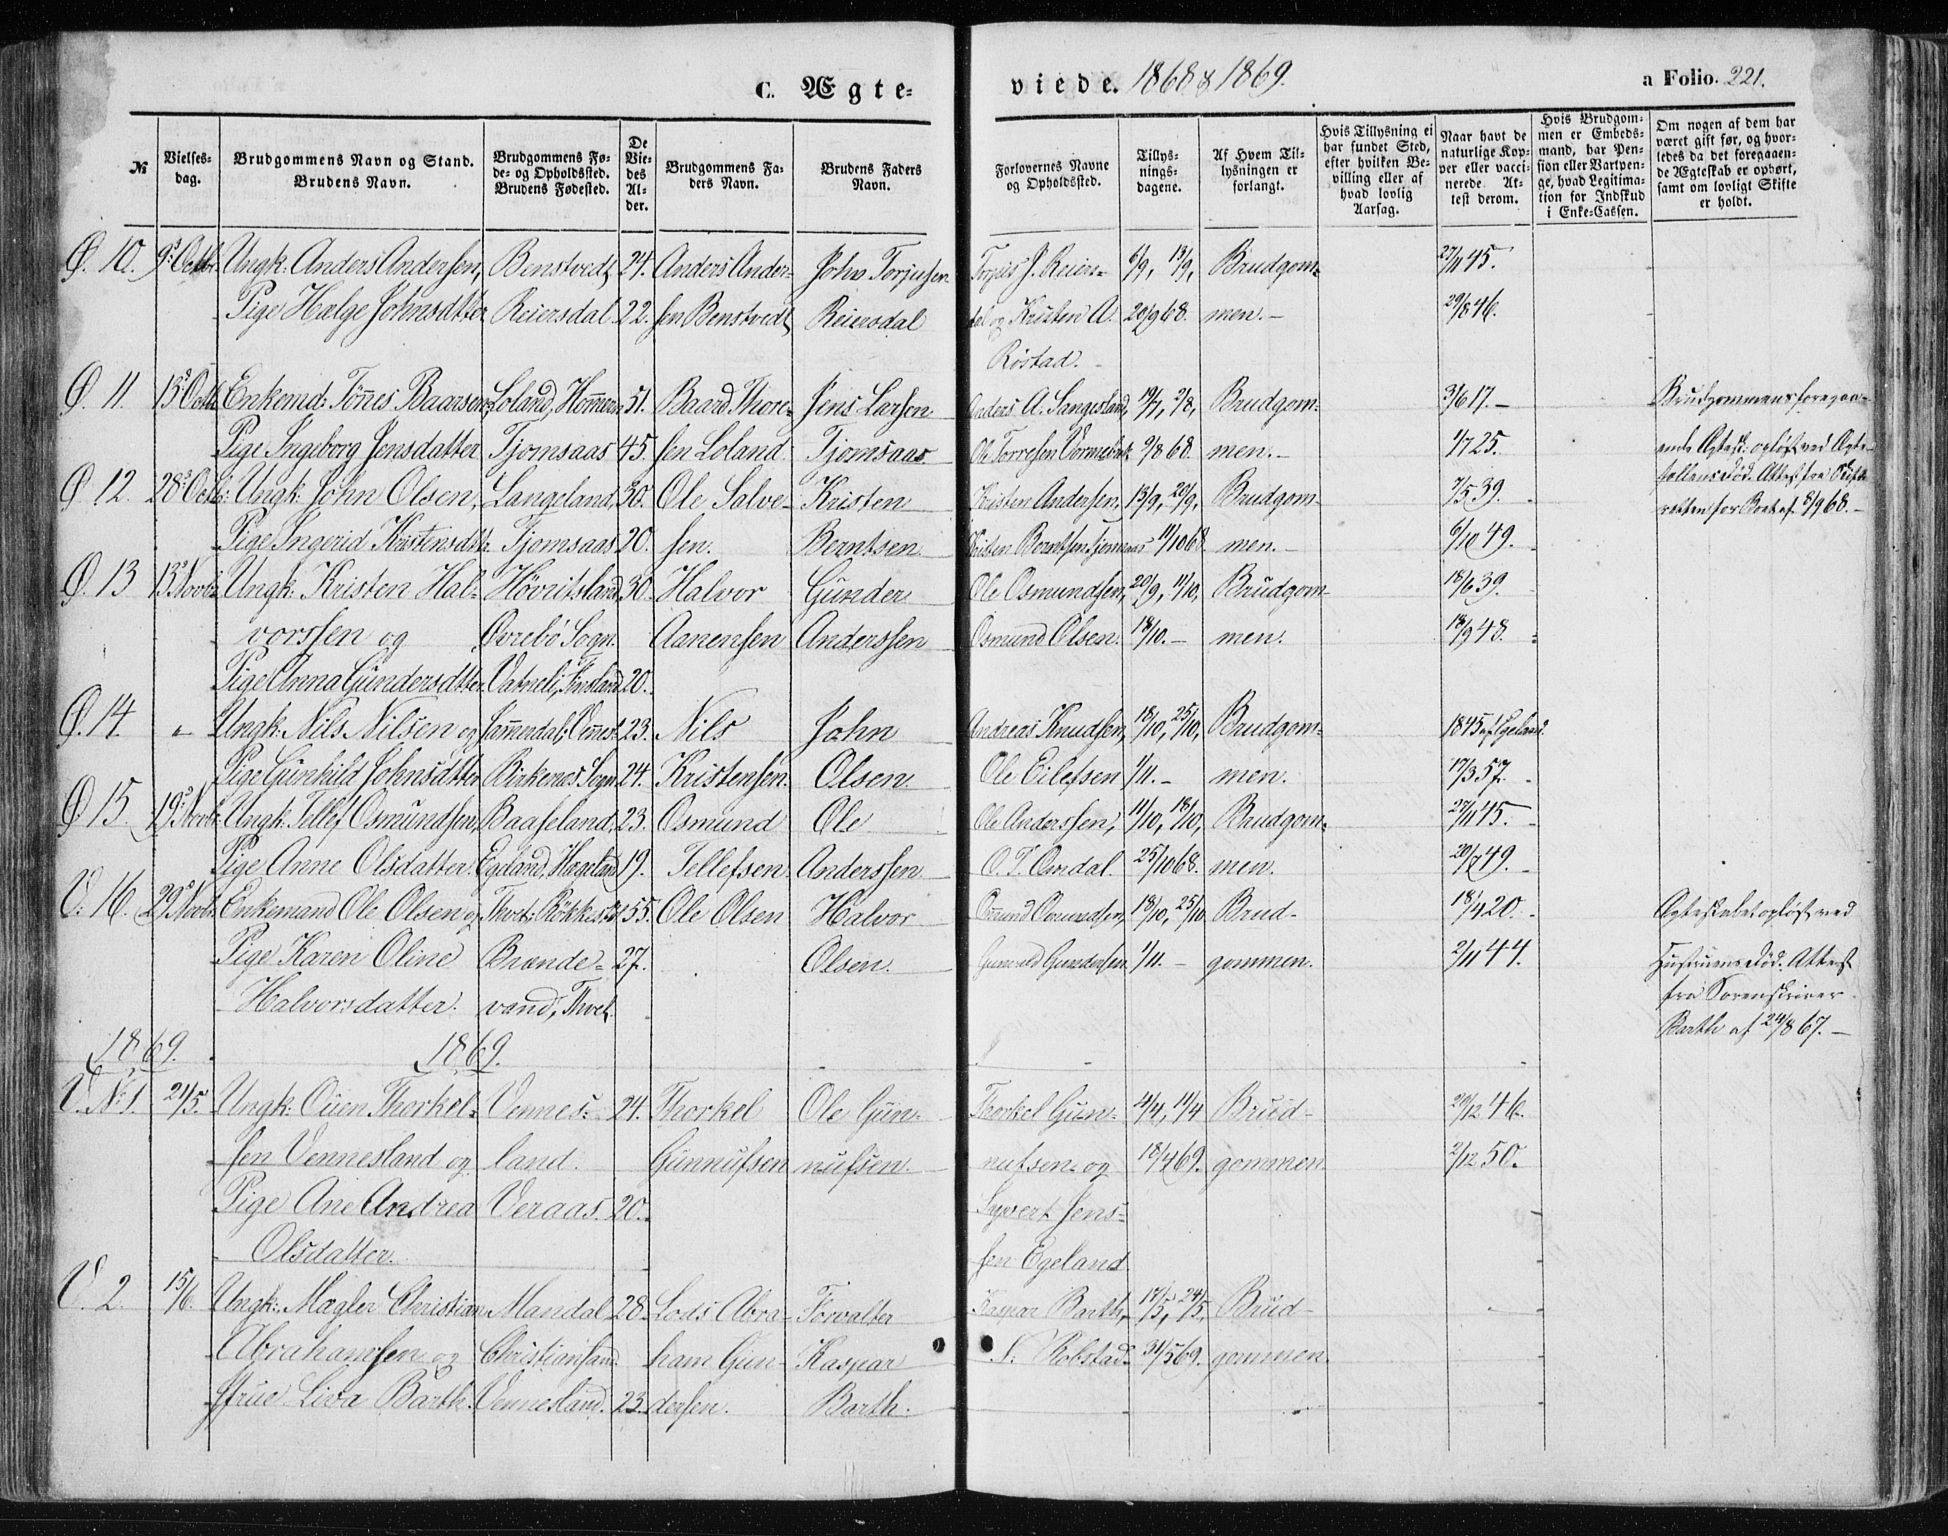 C. Ægte-
viede. 1868 & 1869.
a Folio. 221.
№
Vielses-
dag.
Brudgommens Navn og Stand.
Brudens Navn.
Brudgommens Fø-
de- og Opholdssted.
Brudens Fødested.
De
Vie-
des
Al-
der.
Brudgommens Fa-
ders Navn.
Brudens Faders
Navn.
Forlovernes Navne
og Opholdssted.
Tillys-
nings-
dagene.
Af Hvem Til-
lysningen er
forlangt.
Hvis Tillysning ei
har fundet Sted,
efter hvilken Be-
villing eller af
hvad lovlig
Aarsag.
Naar havt de
naturlige Kop-
per eller vacci-
nerede. At-
test derom.
Hvis Brudgom-
men er Embeds-
mand, har Pen-
sion eller Vartpen-
ge, hvad Legitima-
tion for Indskud
i Enke-Cassen.
Om nogen af dem har
været gift før, og hvor-
ledes da det foregaaen-
de Ægteskab er ophørt,
samt om lovligt Skifte
er holdt.
Ø. 10. 9de Octbr. Ungk: Anders Andersen, Benstvedt 24. Anders Ander- John Torjusen Torjus J. Reiers- 6/9, 13/9, Brudgom- 27/11 45.
Pige Hælge Johnsdatter Reiersdal 22. sen Benstvedt Reiersdal dal og Kristen A. 20/9 68. men.- 29/8 46.
Røstad.
Ø. 11. 13de Octb. Enkemd: Tönnes Baarsen Loland, 51. Baard Thore- Jens Larsen Anders A. Langeland, 19/7, 2/8, Brudgom- 3/6 17.- Brudgommens foregaa-
Pige Ingeborg Jensdatter Tjomsaas 45. sen Loland. Tjomsaas Ole Torresen 9/8 68. men.- 1/7 25. ende Ægtesk: opløst ved Ægte-
Ø 12. 28de Octb: Ungk: John Olsen, Langeland, 30. Ole Salve- Kristen Kristen Andersen, 13/9, 20/9, Brudgom- 7/5 39. Død. Attest fra Skifte-
Pige Ingerid Kristensdtr Tjomsaas 20. sen. Berntsen Kristen Berntsen Tjomsaas 11/10 68. men.- 6/10 49. retten for Boet af 8/9 68.-
Ø. 13 13de Novbr. Ungk: Kristen Hal- Hövritsland 30. Halvor Gunder Ole Osmundsen, 20/9, 11/10, Brudgom- 18/6 39.
vorssen og Øvrebö Sogn. Aanensen Anderssen Osmund Olsen. 18/10.- men. 18/9 48.
Pige Anna Gundersdtter Vatneli, Finsland 20.
Ø. 14. " Ungk: Nils Nilsen og 23. Nils John Andreas Knudsen, 18/10, 25/10, Brudgom- 1845 af Egeland.
Pige Gunhild Johnsdtter Birkenes Sogn 24. Kristensen. Olsen. Ole Eilefsen 1/11.- men. 17/3 57.
Ø 15. 19de Novbr. Ungk: Tellef Osmundsen, Baaseland, 23. Osmund Ole Ole Anderssen, 11/10, 18/10, Brudgom- 27/11 45.
Pige Anne Olsdatter Egeland, Hægeland 19. Tellefsen. Anderssen O. T. Omdal. 25/10 68. men. 20/7 49.
V: 16. 29de Novbr. Enkemand Ole Olsen og Thvet: 55. Ole Olsen Halvor 18/10, 25/10. Brud- 18/4 20. Ægteskabet opløst ved
Pige Karen Oline Brænde- 27. Olsen. Gundersen 1/11.- gommen. 2/11 44. Hustruens Død. Attest
Halvorsdatter. vand, Thvet. fra Sorenskriver
Barth af 24/8 67.-
1869. 1869.
V. №1. 21/5. Ungk: Ouen Thorkel- Vennes- 24. Thorkel Ole Gun- Thorkel Gun- 4/4, 11/4 Brud- 29/12 46.
sen Vennesland og land. Gunnufsen nufsen nufsen og 18/4 69. gommen 2/12 50.
Pige Ane Andrea Veraas. 20. Syvert Jens-
Olsdatter. sen Egeland
V. 2. 15/6. Ungk: Mægler Christian Mandal, 28. Lods Abra- Forvalter Kaspar Barth, 17/5, 24/5, Brud-
Abrahamsen og Christiansand ham Gun- Kaspar S. Robstad 31/5 69. gommen.
Frue Liva Barth. Vennesland. 23. dersen. Barth.